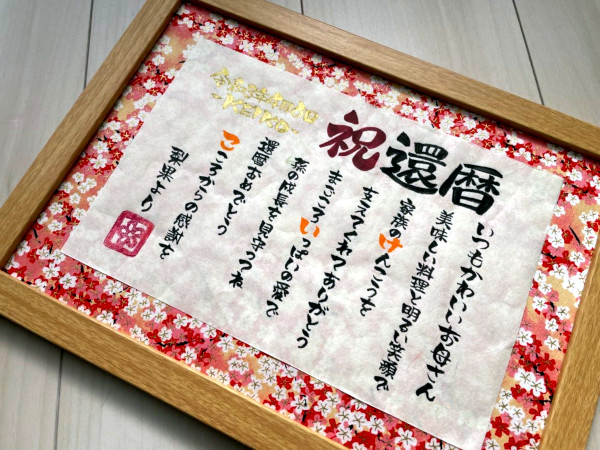 祝還暦
いつもかわいいお母さん
美味しい料理と明るい笑顔で
家族のけんこうを
支えてくれてありがとう
まごころいっぱいの愛で
孫の成長を見守ってね
還暦おめでとう
こころからの感謝を
梨果より